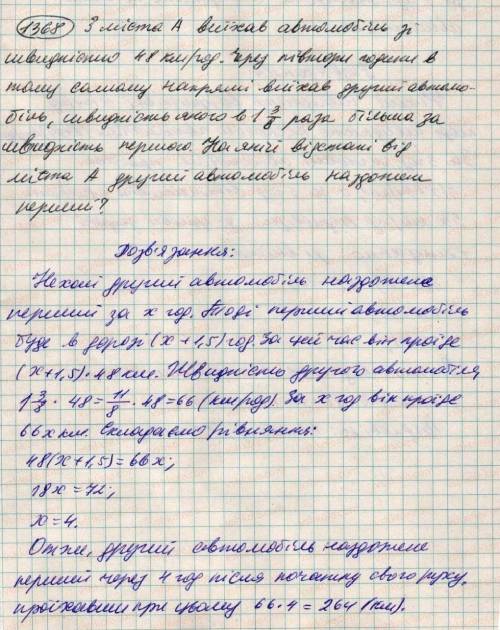 1368 З міста А виїхав автомобіль зі
швидністю 48 км/год. Через півтори години в
тому самому напрямі виїхав другий автомо-
біль, швидність якого в 1 3/8 раза більша за
швидність першого. На якій відстані від
міста А другий автомобіль наздожене
перший?
Розв'язання:
Нехай другий автомобіль наздожене
перший за x год. Тоді перший автомобіль
буде в дорозі (x + 1,5) год. За цей час він проїде
(x+1,5)·48 км. Швидкість другого автомобіля
1 3/8 · 48 = 11/8 · 48 = 66 (км/год). За x год він проїде
66x км. Складаємо рівняння:
48(x+1,5)=66x;
18x = 72;
x = 4.
Отже, другий автомобіль наздожене
перший через 4 год після початку свого руху,
проїхавши при цьому 66·4 = 264 (км).